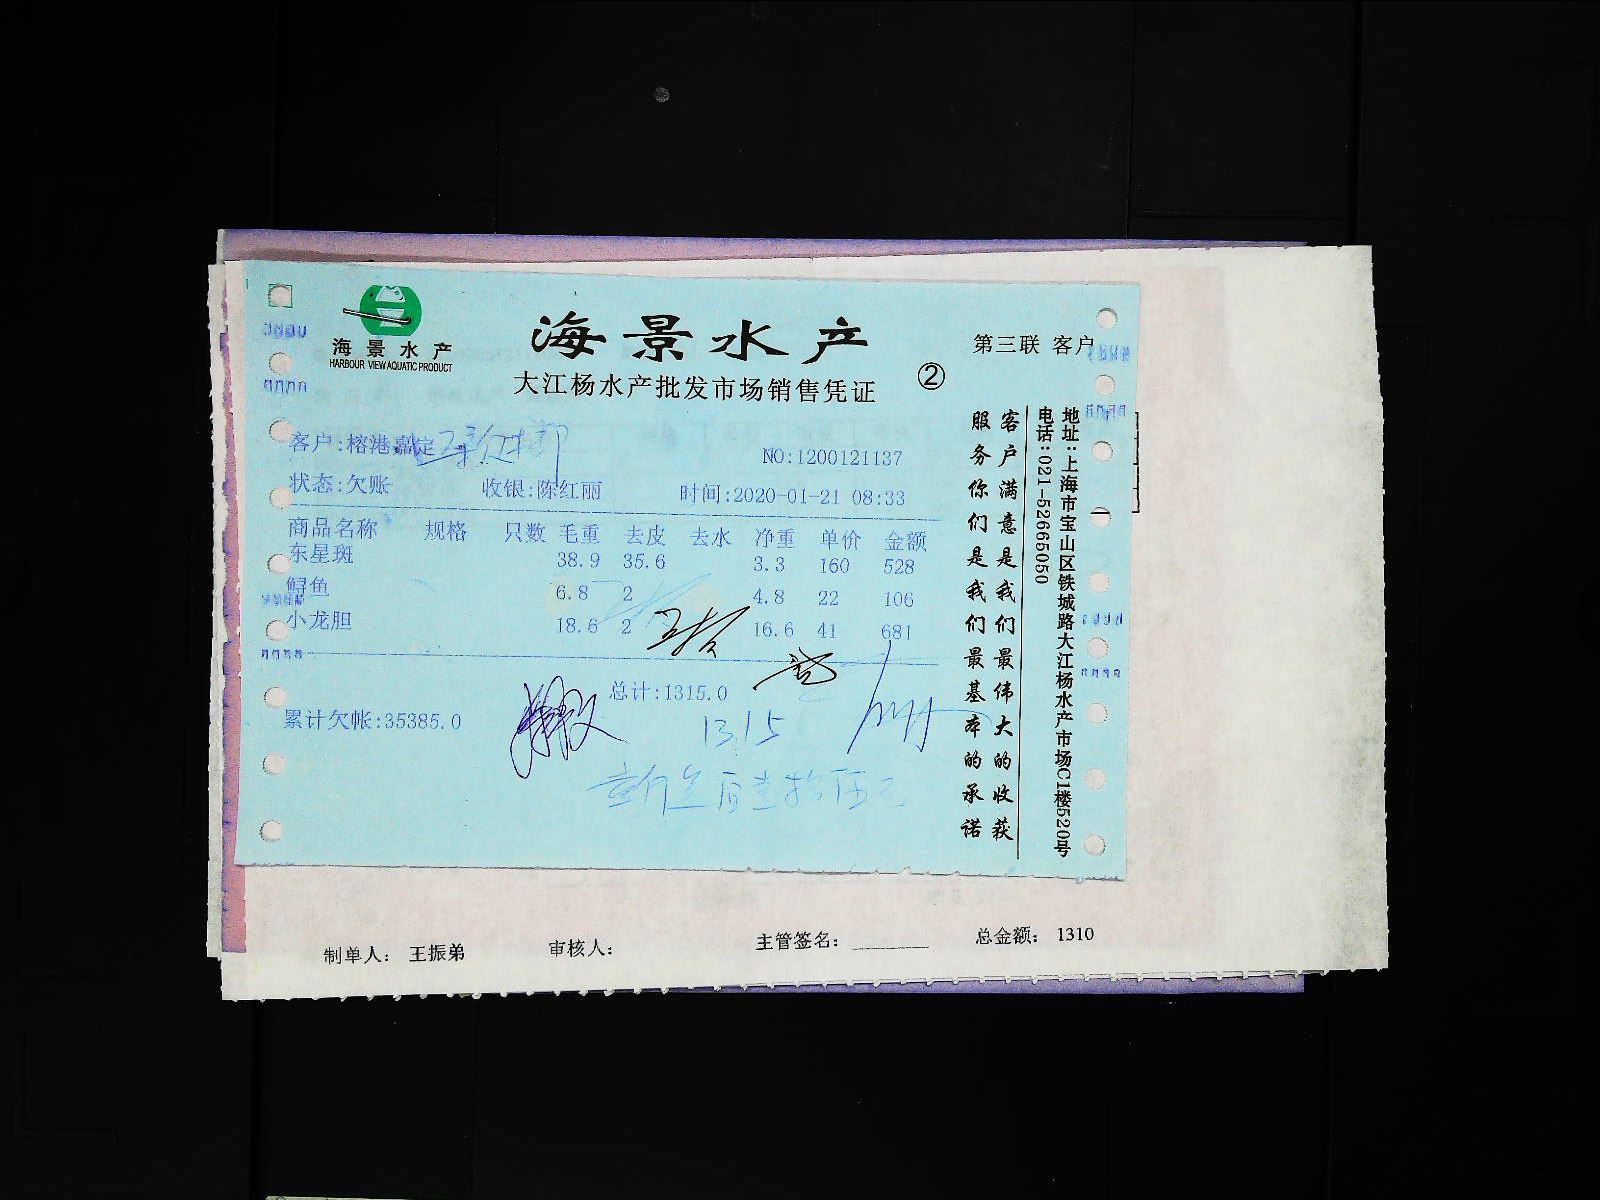 海景水产
HARBOUR VIEW AQUATIC PRODUCT
海景水产
大江杨水产批发市场销售凭证
②
第三联 客户
客户:榕港嘉定
NO:1200121137
状态:欠账 收银:陈红丽 时间:2020-01-21 08:33
商品名称 规格 只数 毛重 去皮 去水 净重 单价 金额
东星斑 38.9 35.6 3.3 160 528
鲟鱼 6.8 2 4.8 22 106
小龙胆 18.6 2 16.6 41 681
总计:1315.0
累计欠帐:35385.0
1315
客户满意是我们最伟大的收获
服务你们是我们最基本的承诺
地址:上海市宝山区铁城路大江杨水产市场C1楼520号
电话:021-52665050
制单人: 王振弟 审核人: 主管签名: 总金额: 1310